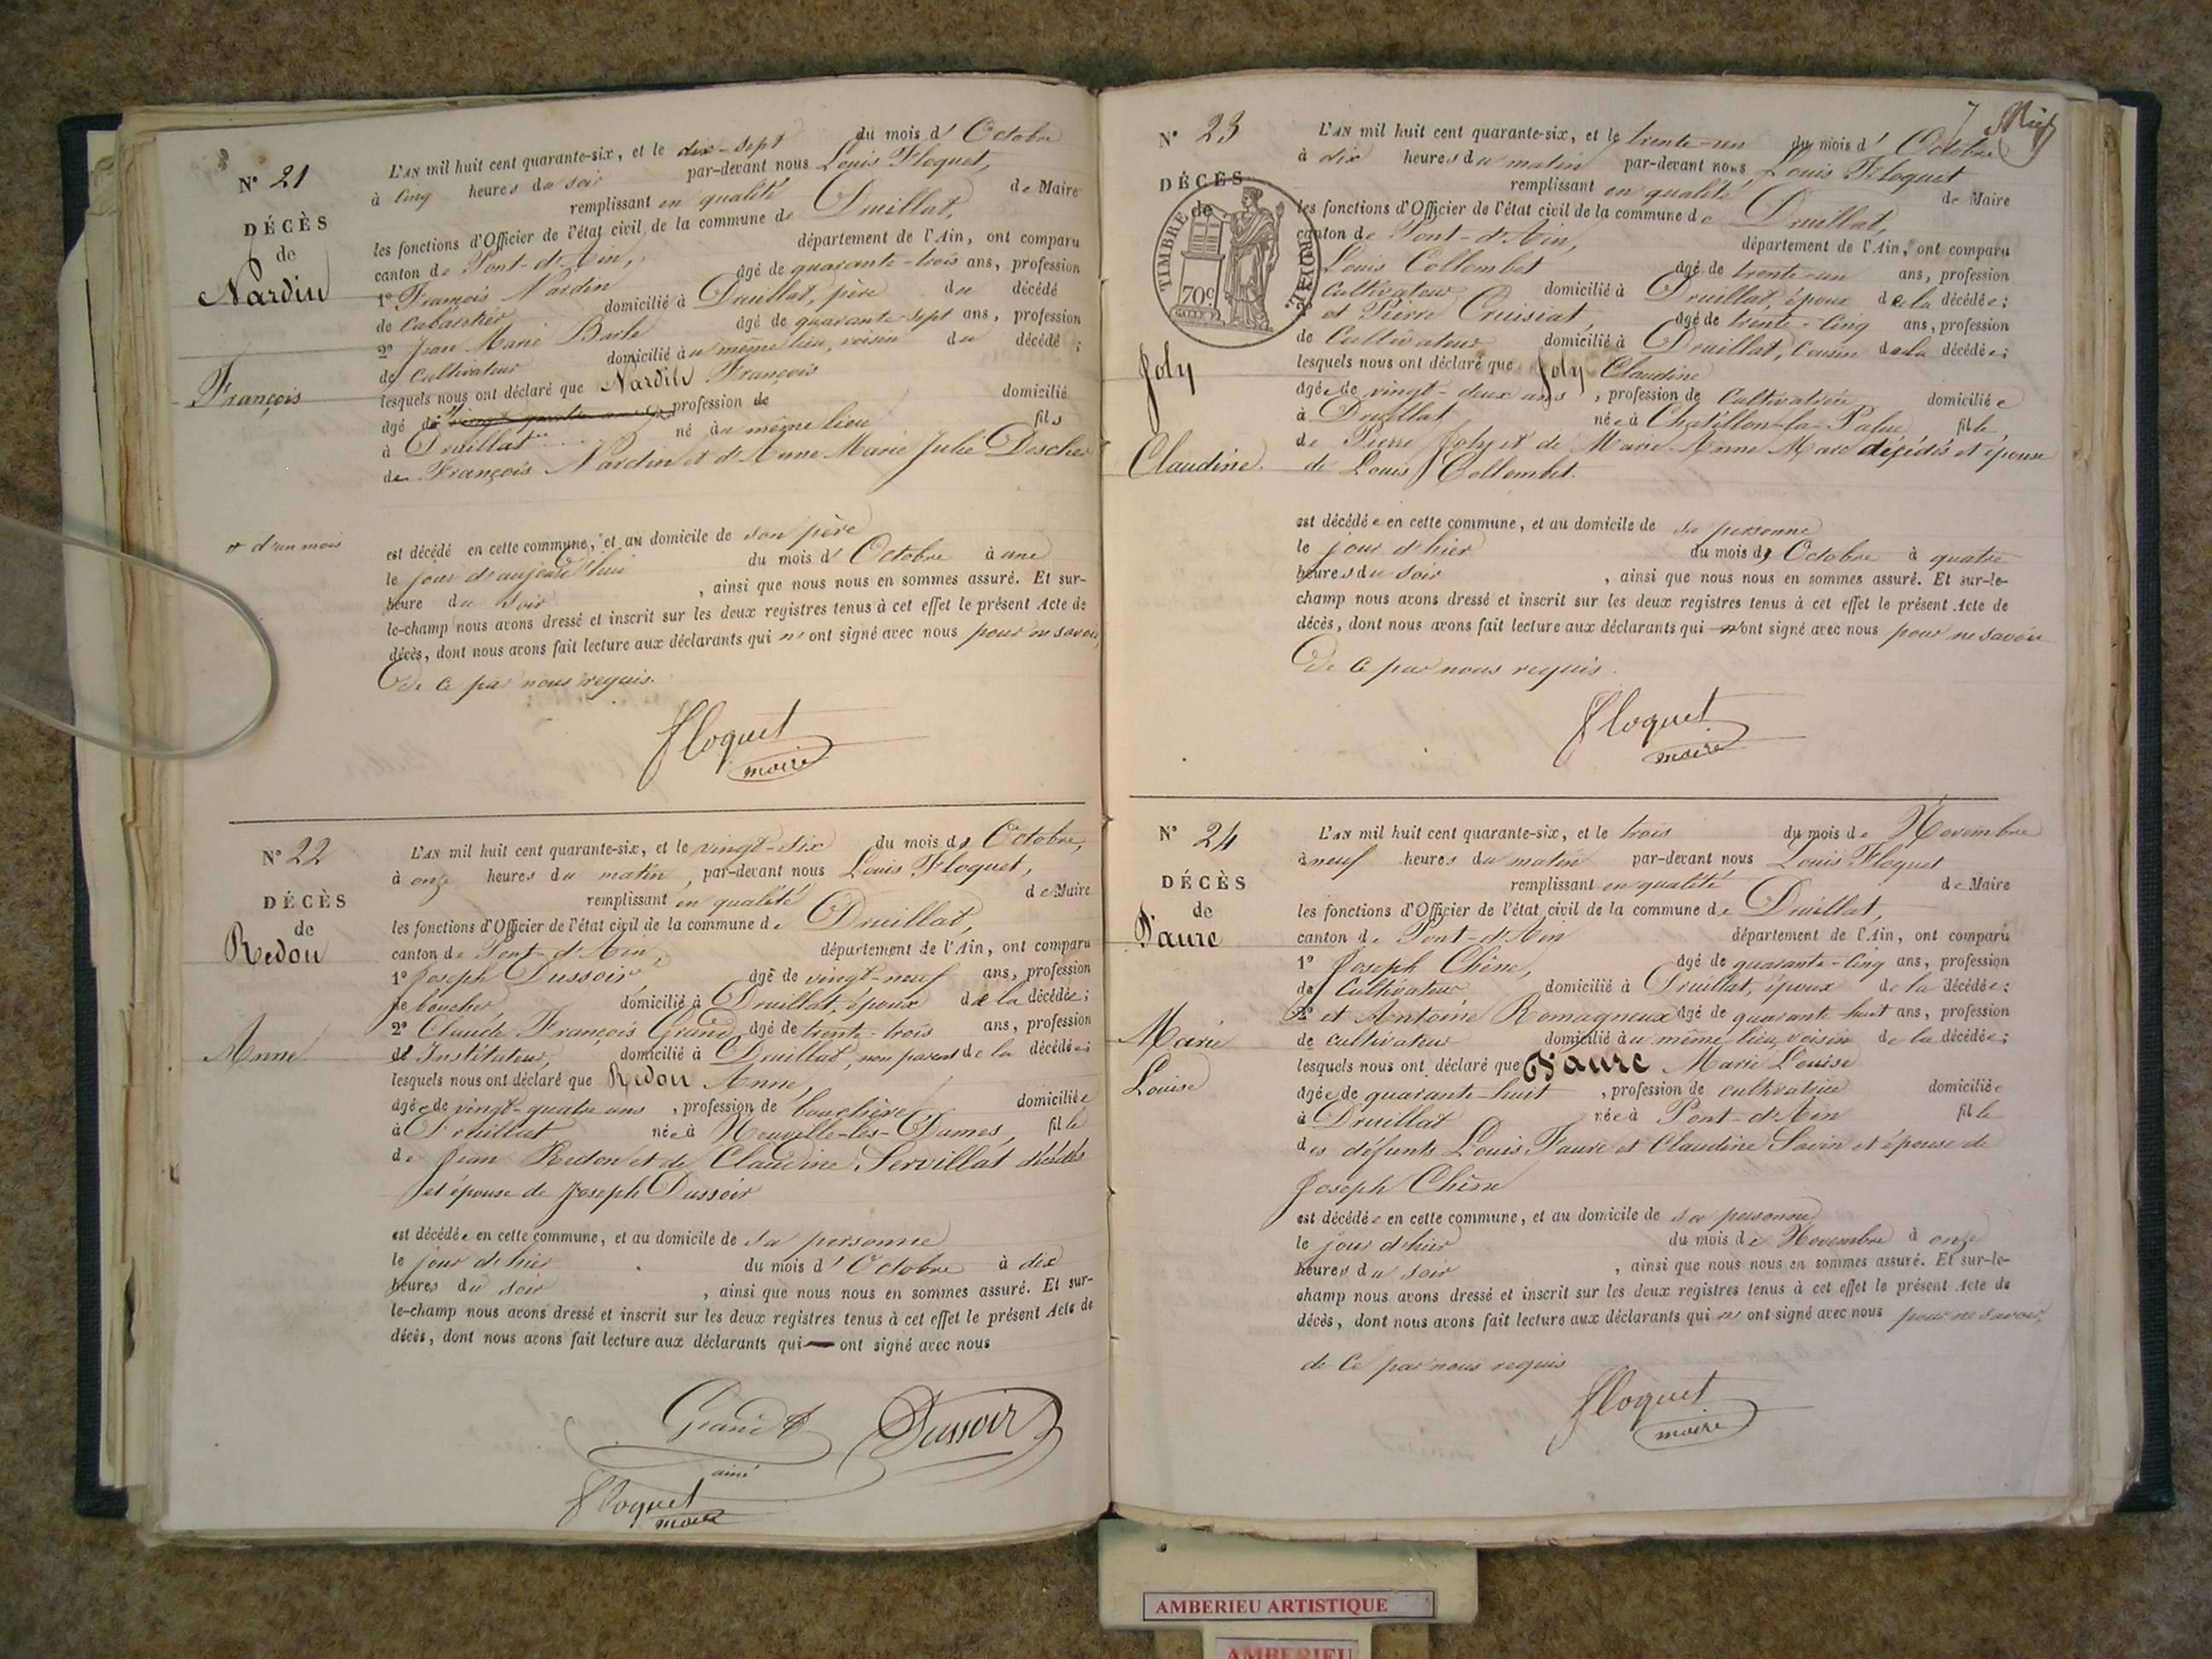 N° 21
DÉCÈS
de
Nardin
François
L'AN mil huit cent quarante-six, et le dix-sept du mois d' Octobre
à cinq heures du soir par-devant nous Louis Floquet,
remplissant en qualité de Maire
les fonctions d'Officier de l'état civil de la commune de Druillat,
canton de Pont-d'Ain, département de l'Ain, ont comparu
1° François Nardin âgé de quarante-trois ans, profession
de Cabaretier domicilié à Druillat, père du décédé
2° Jean Marie Barbe âgé de quarante-sept ans, profession
de Cultivateur domicilié au même lieu, voisin du décédé;
lesquels nous ont déclaré que Nardin François
âgé de profession de domicilié
à Druillat né au même lieu fils
de François Nardin et d'Anne Marie Julie Descher
d'un mois
est décédé en cette commune, et au domicile de son père
le jour d'aujourd'hui du mois d' Octobre à une
heure du soir, ainsi que nous nous en sommes assuré. Et sur-
le-champ nous avons dressé et inscrit sur les deux registres tenus à cet effet le présent Acte de
décès, dont nous avons fait lecture aux déclarants qui n'ont signé avec nous pour ne savoir,
De ce par nous requis.
Floquet
maire
N° 22
DÉCÈS
de
Redon
Anne
L'AN mil huit cent quarante-six, et le vingt-six du mois d' Octobre,
à onze heures du matin, par-devant nous Louis Floquet,
remplissant en qualité de Maire
les fonctions d'Officier de l'état civil de la commune de Druillat,
canton de Pont-d'Ain, département de l'Ain, ont comparu
1° Joseph Dussoir, âgé de vingt-neuf ans, profession
de boucher, domicilié à Druillat, époux de la décédée;
2° Claude François Grand, âgé de trente-trois ans, profession
d' Instituteur, domicilié à Druillat, non parent de la décédée;
lesquels nous ont déclaré que Redon Anne,
âgée de vingt-quatre ans, profession de bouchère, domiciliée
à Druillat née à Neuville-les-Dames, fille
de Jean Redon et de Claudine Servillat décédés
et épouse de Joseph Dussoir
est décédée en cette commune, et au domicile de sa personne
le jour d'hier du mois d' Octobre à dix
heures du soir, ainsi que nous nous en sommes assuré. Et sur-
le-champ nous avons dressé et inscrit sur les deux registres tenus à cet effet le présent Acte de
décès, dont nous avons fait lecture aux déclarants qui ont signé avec nous
Grand
Dussoir
ainé
Floquet
maire
7
N° 23
DÉCÈS
de
TIMBRE ROYAL
70c
Joly
Claudine
L'AN mil huit cent quarante-six, et le trente-un du mois d' Octobre
à dix heures du matin par-devant nous Louis Floquet
remplissant en qualité de Maire
les fonctions d'Officier de l'état civil de la commune de Druillat,
canton de Pont-d'Ain, département de l'Ain, ont comparu
Louis Collombet âgé de trente-un ans, profession
Cultivateur domicilié à Druillat, époux de la décédée;
et Pierre Cruisiat, âgé de trente-cinq ans, profession
de Cultivateur domicilié à Druillat, Cousin de la décédée;
lesquels nous ont déclaré que Joly Claudine
âgée de vingt-deux ans, profession de Cultivatrice domiciliée
à Druillat née à Châtillon-la-Palud fille
de Pierre Joly et de Marie-Anne Marc décédés et épouse
de Louis Collombet.
est décédée en cette commune, et au domicile de sa personne
le jour d'hier du mois d' Octobre à quatre
heures du soir, ainsi que nous nous en sommes assuré. Et sur-le-
champ nous avons dressé et inscrit sur les deux registres tenus à cet effet le présent Acte de
décès, dont nous avons fait lecture aux déclarants qui n'ont signé avec nous pour ne savoir
De ce par nous requis.
Floquet
maire
N° 24
DÉCÈS
de
Faure
Marie
Louise
L'AN mil huit cent quarante-six, et le trois du mois de Novembre
à neuf heures du matin par-devant nous Louis Floquet
remplissant en qualité de Maire
les fonctions d'Officier de l'état civil de la commune de Druillat,
canton de Pont-d'Ain département de l'Ain, ont comparu
1° Joseph Chêne, âgé de quarante-cinq ans, profession
de Cultivateur domicilié à Druillat, époux de la décédée;
2° et Antoine Romagneux âgé de quarante-huit ans, profession
de Cultivateur domicilié au même lieu, voisin de la décédée;
lesquels nous ont déclaré que Faure Marie Louise
âgée de quarante-huit, profession de cultivatrice domiciliée
à Druillat née à Pont-d'Ain fille
des défunts Louis Faure et Claudine Savin et épouse de
Joseph Chêne
est décédée en cette commune, et au domicile de sa personne
le jour d'hier du mois de Novembre à onze
heures du soir, ainsi que nous nous en sommes assuré. Et sur-le-
champ nous avons dressé et inscrit sur les deux registres tenus à cet effet le présent Acte de
décès, dont nous avons fait lecture aux déclarants qui n'ont signé avec nous pour ne savoir,
de ce par nous requis
Floquet
maire
AMBERIEU ARTISTIQUE
AMBERIEU